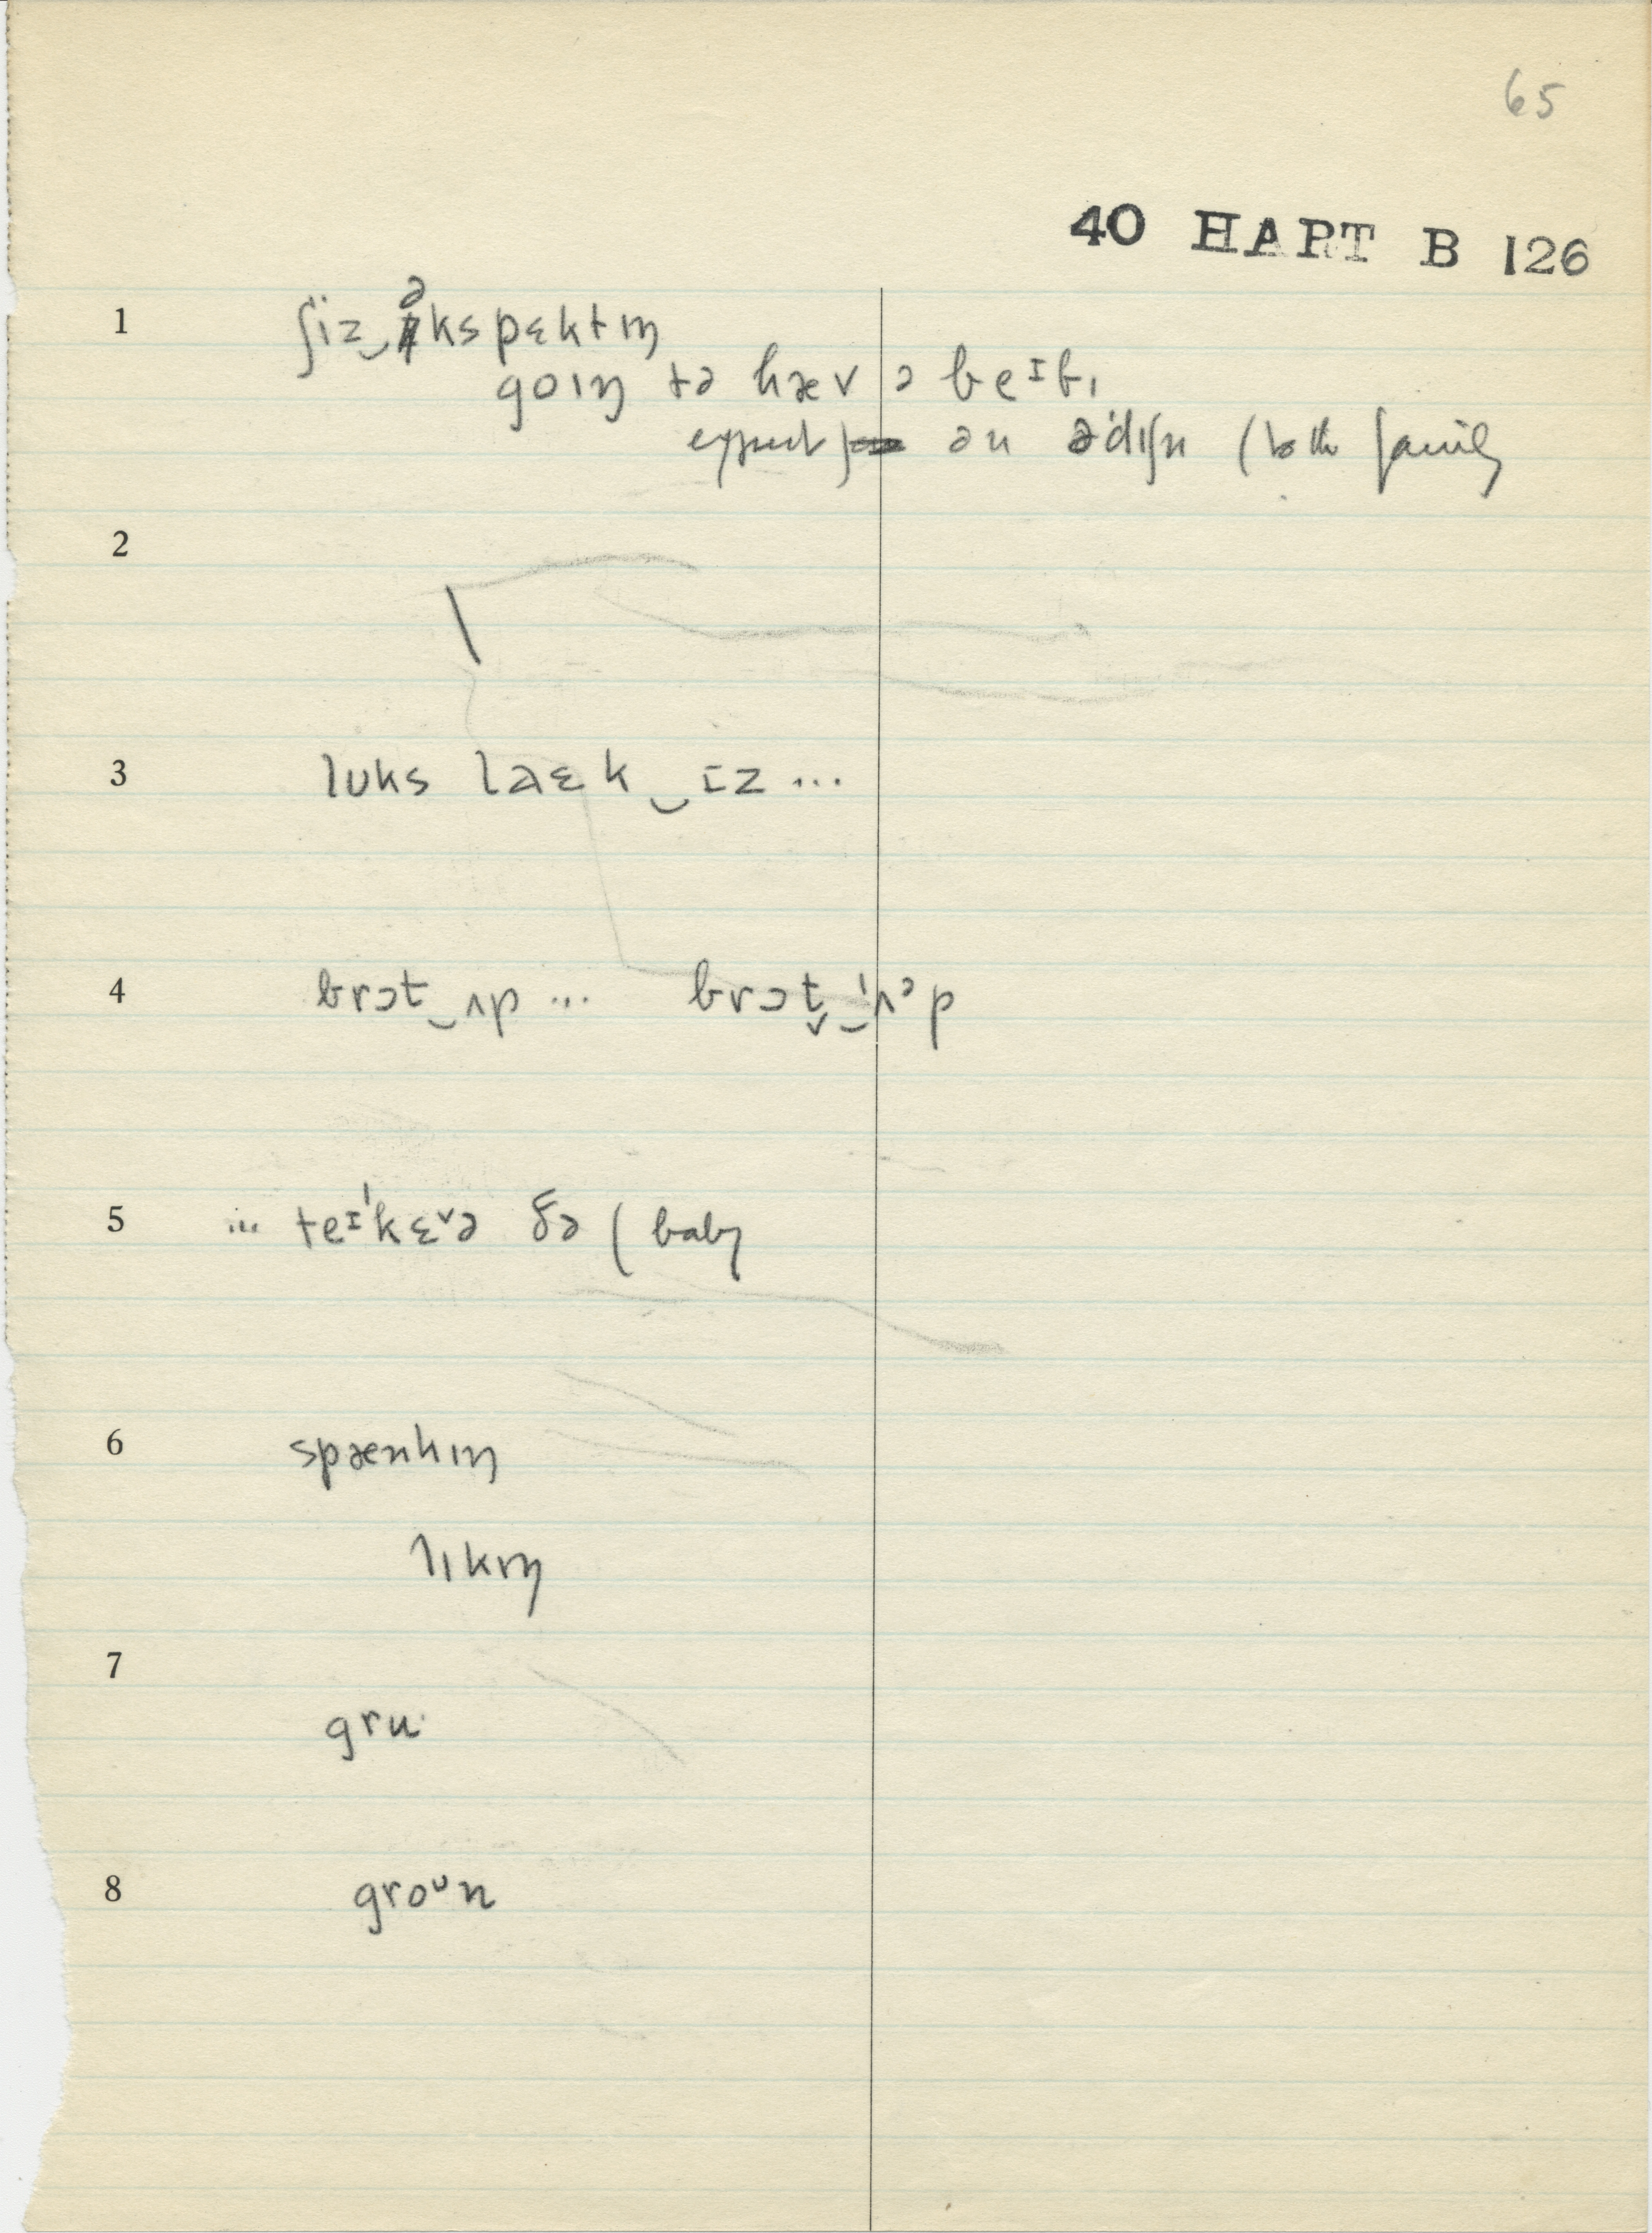 65
40 HART B 126
1 ʃiz‿əkspɛktɪŋ
goɪŋ tə hæv ə beɪbɪ
expect an əˈdɪʃn (to the family
2 \
3 lʊks laɛk‿ɪz ...
4 brɔt‿ʌp ... brɔt̬‿ˈʌᵊp
5 ... teɪˈkɛ˅ə ðə ( baby
6 spænkɪŋ
lɪkɪŋ
7 gru·
8 groᶷn